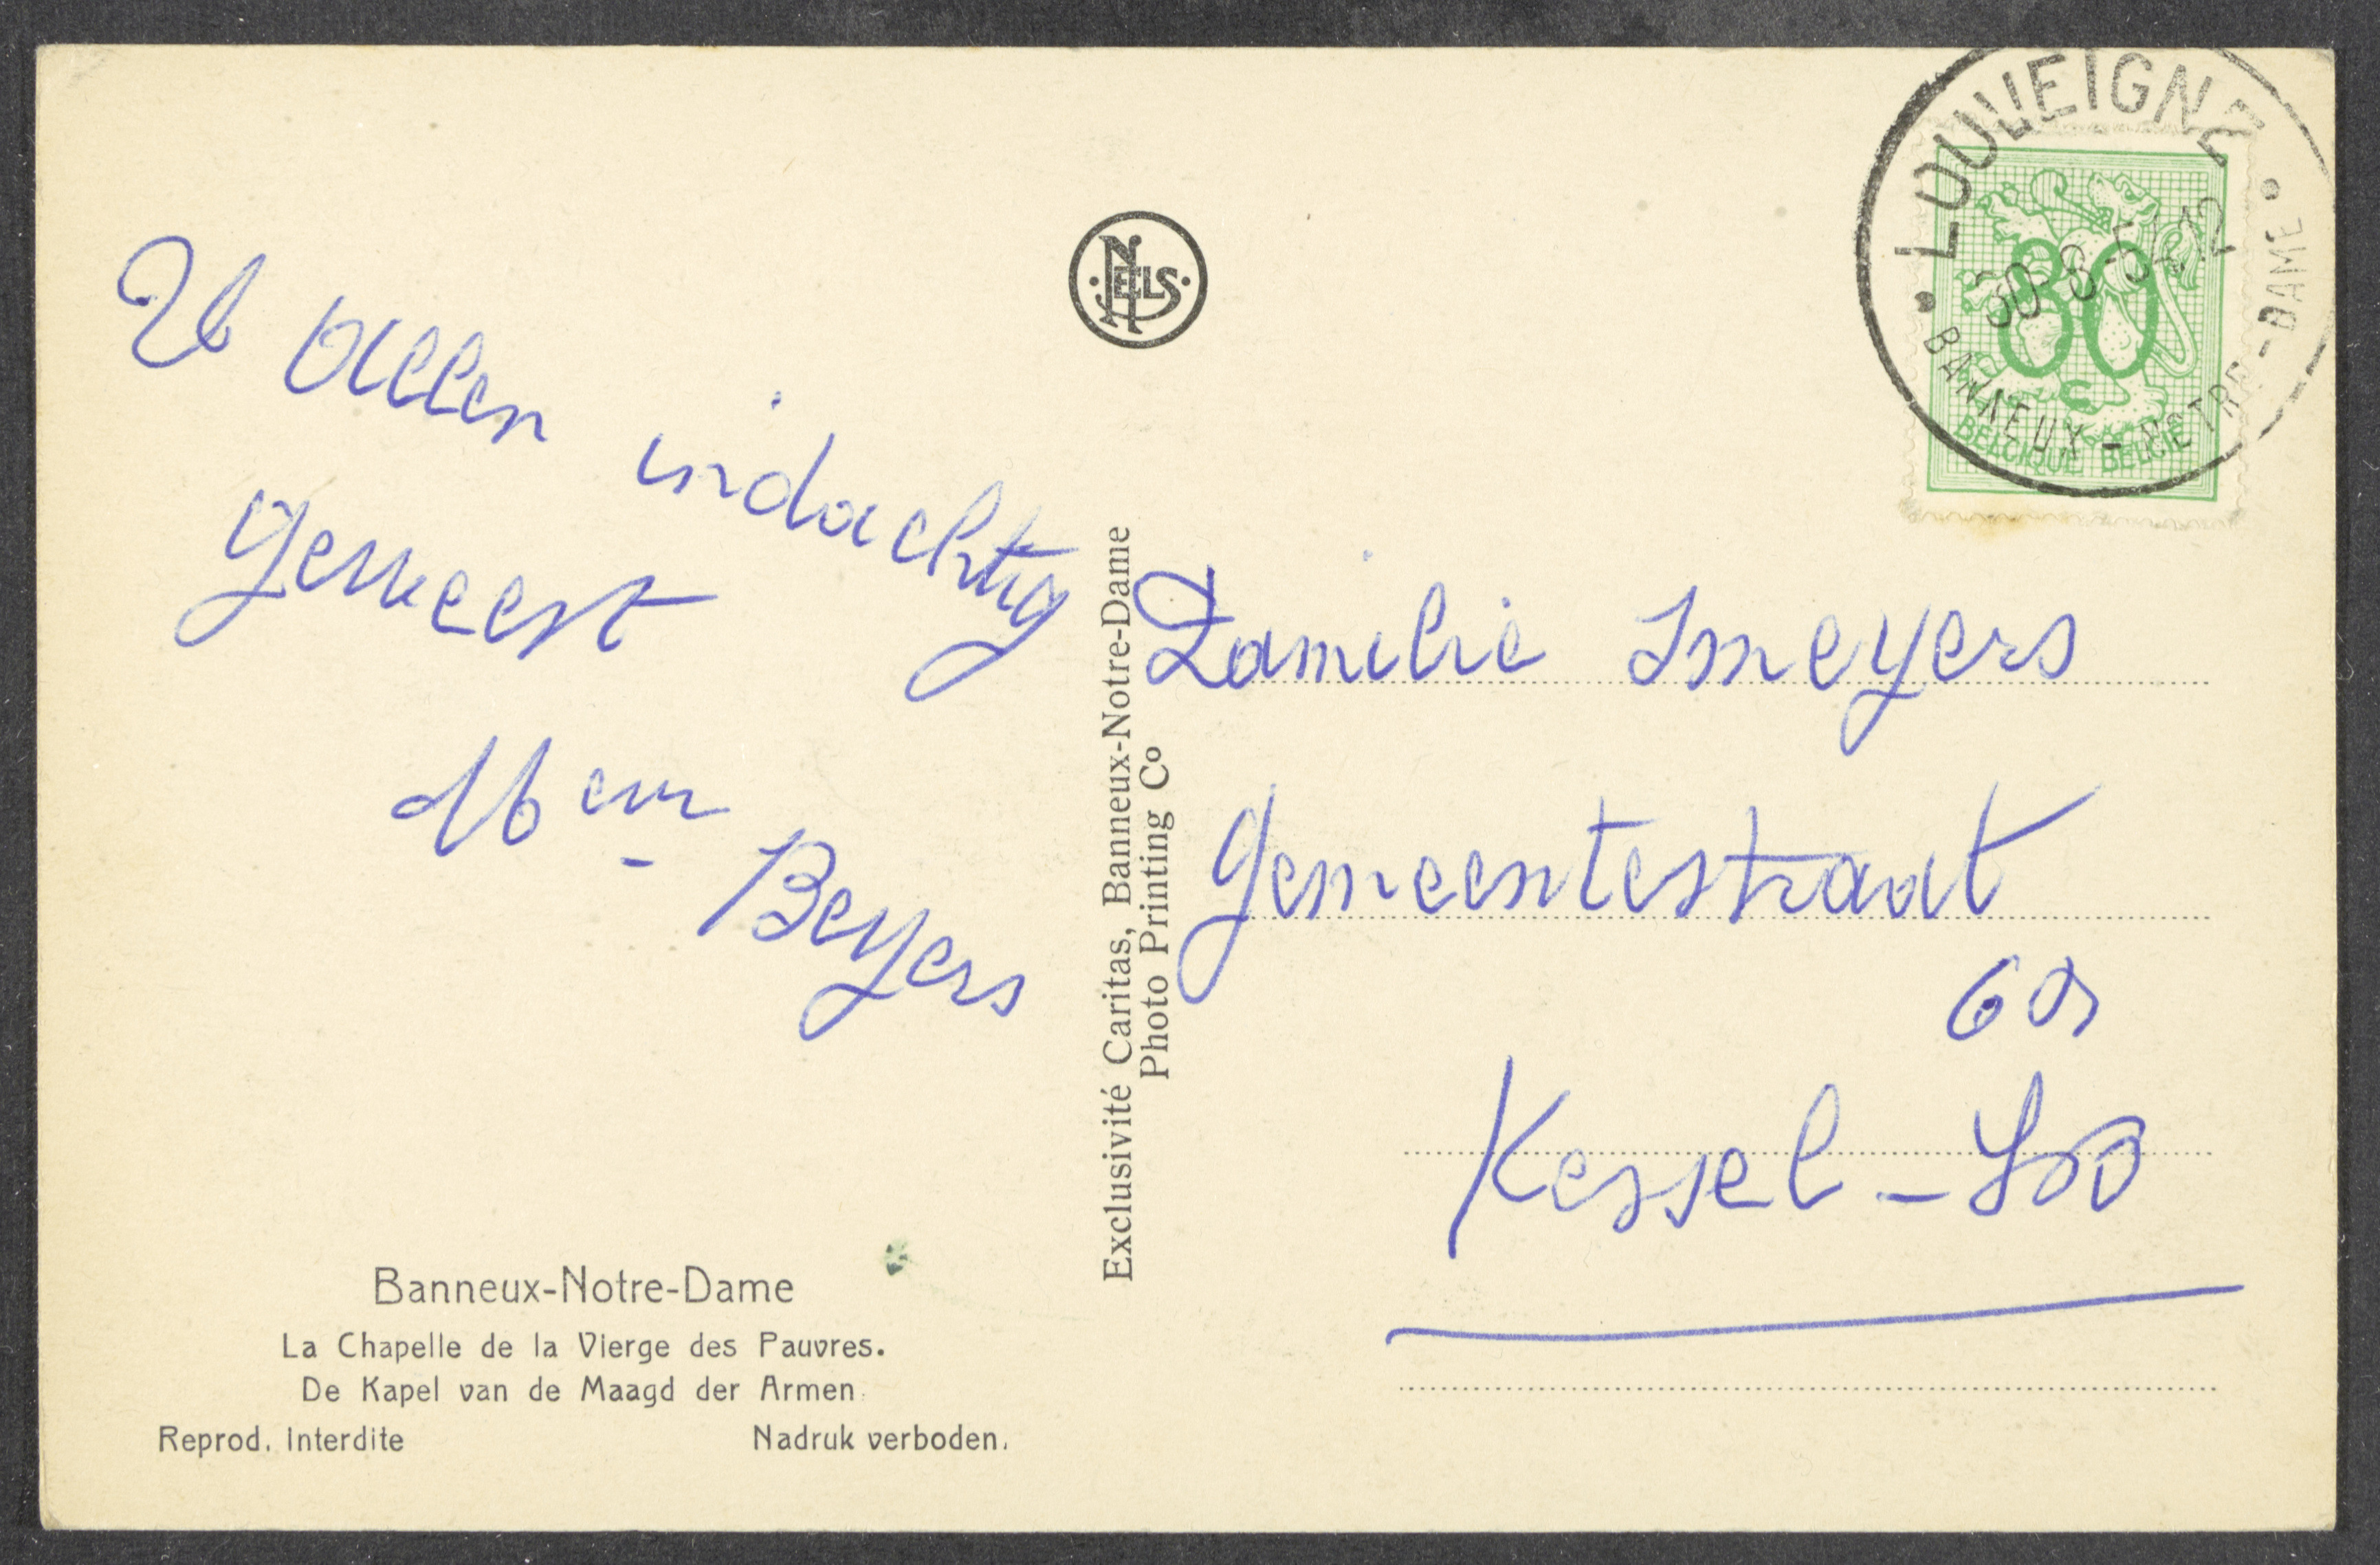 U allen indachtig
geweest
Mevr Beyers
Banneux-Notre-Dame
La Chapelle de la Vierge des Pauvres.
De Kapel van de Maagd der Armen
Reprod. Interdite Nadruk verboden.
NELS
Exclusivité Caritas, Banneux-Notre-Dame
Photo Printing Co
LOUVEIGNE
30-8- 12
BANNEUX-NOTRE-DAME
80
BELGIQUE BELGIE
Familie Smeyers
Gemeentestraat
Kessel-Loo